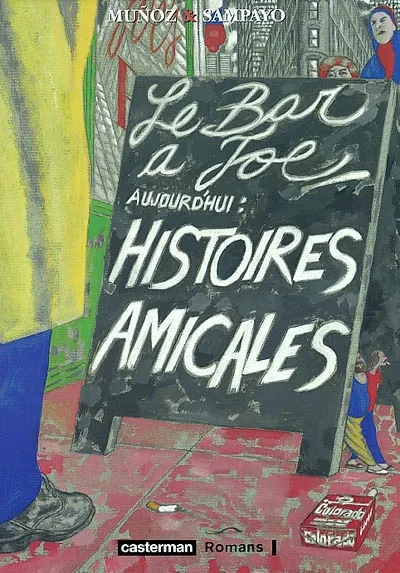 MUÑOZ & SAMPAYO
Le Bar
a Joe
AUJOURD'HUI :
HISTOIRES
AMICALES
Colorado
Colorado
casterman Romans